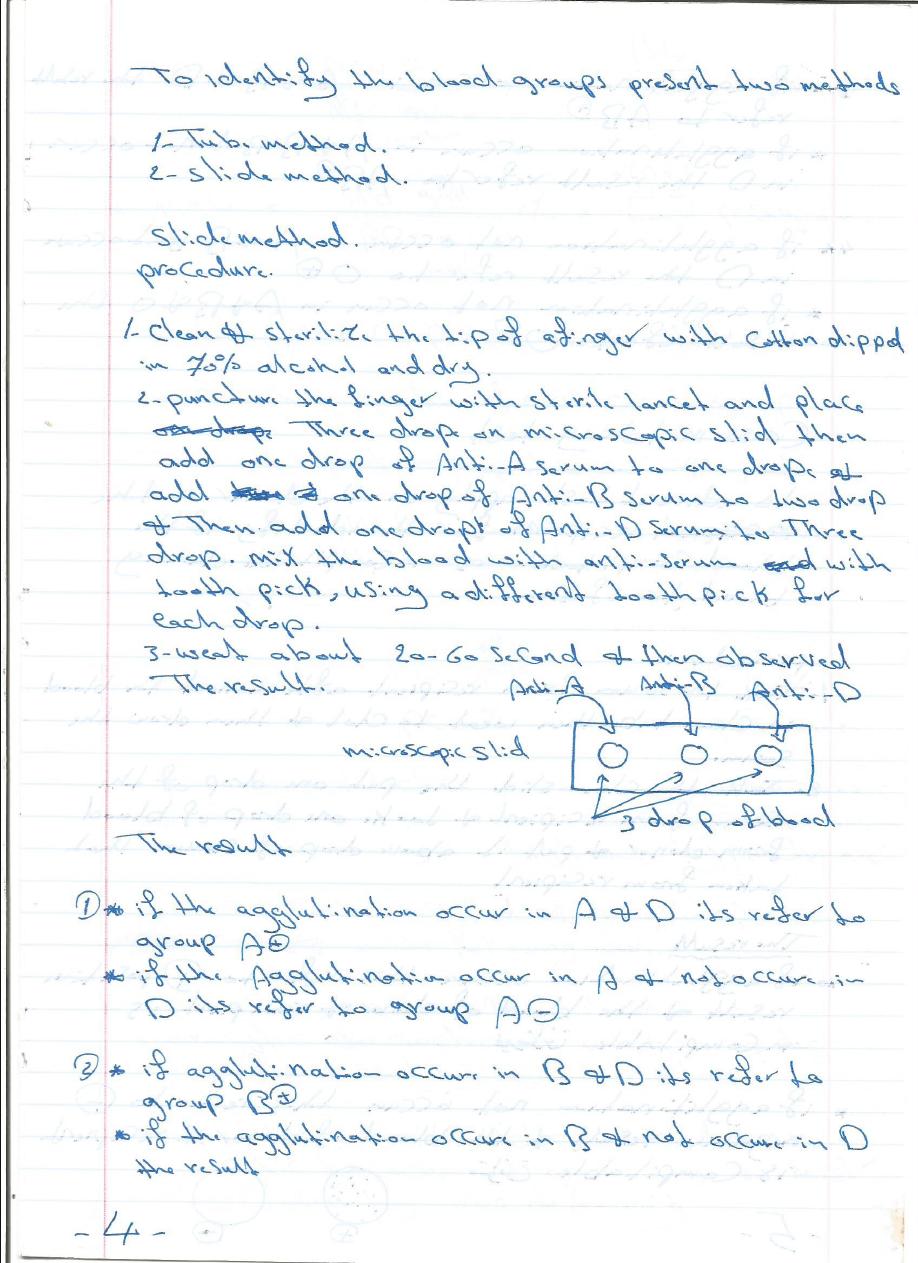 To identify the blood groups present two methods
1- Tube method.
2- slide method.
slide method.
procedure.
1- Clean & sterilize the tip of a finger with cotton dipped
in 70% alcohol and dry.
2- puncture the finger with sterile lancet and place
Three drops on microscopic slid then
add one drop of Anti-A serum to one drops &
add one drop of Anti-B serum to two drop
& Then add one drop of Anti-D serum to Three
drop. mix the blood with anti-serum with
tooth pick, using a different tooth pick for
each drop.
3- weat about 20-60 second & then observed
The result.
Anti-A Anti-B Anti-D
microscopic slid
3 drop of blood
The result
① * if the agglutination occur in A & D its refer to
group A⊕
* if the Agglutination occur in A & not occure in
D its refer to group A⊖
② * if agglutination occure in B & D its refer to
group B⊕
* if the agglutination occure in B & not occure in D
the result
-4-